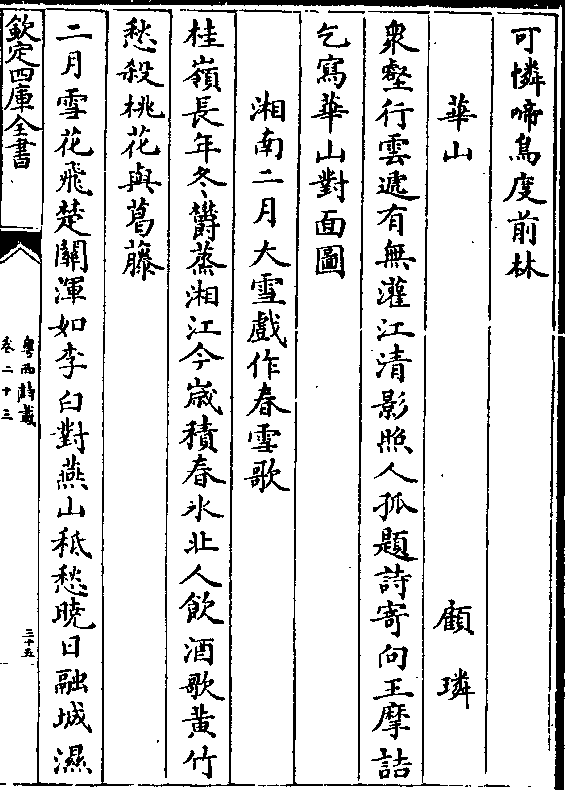 可憐啼鳥度前林
華山 顧璘
衆壑行雲遞有無灌江清影照人孤題詩寄向王摩詰
乞寫華山對面圖
湘南二月大雪戲作春雪歌
桂嶺長年冬鬱蒸湘江今歲積春氷北人飲酒歌黄竹
愁殺桃花與葛藤
二月雪花飛楚關渾如李白對燕山秪愁曉日融城濕
欽定四庫全書
粤西詩載
卷二十三
三十五